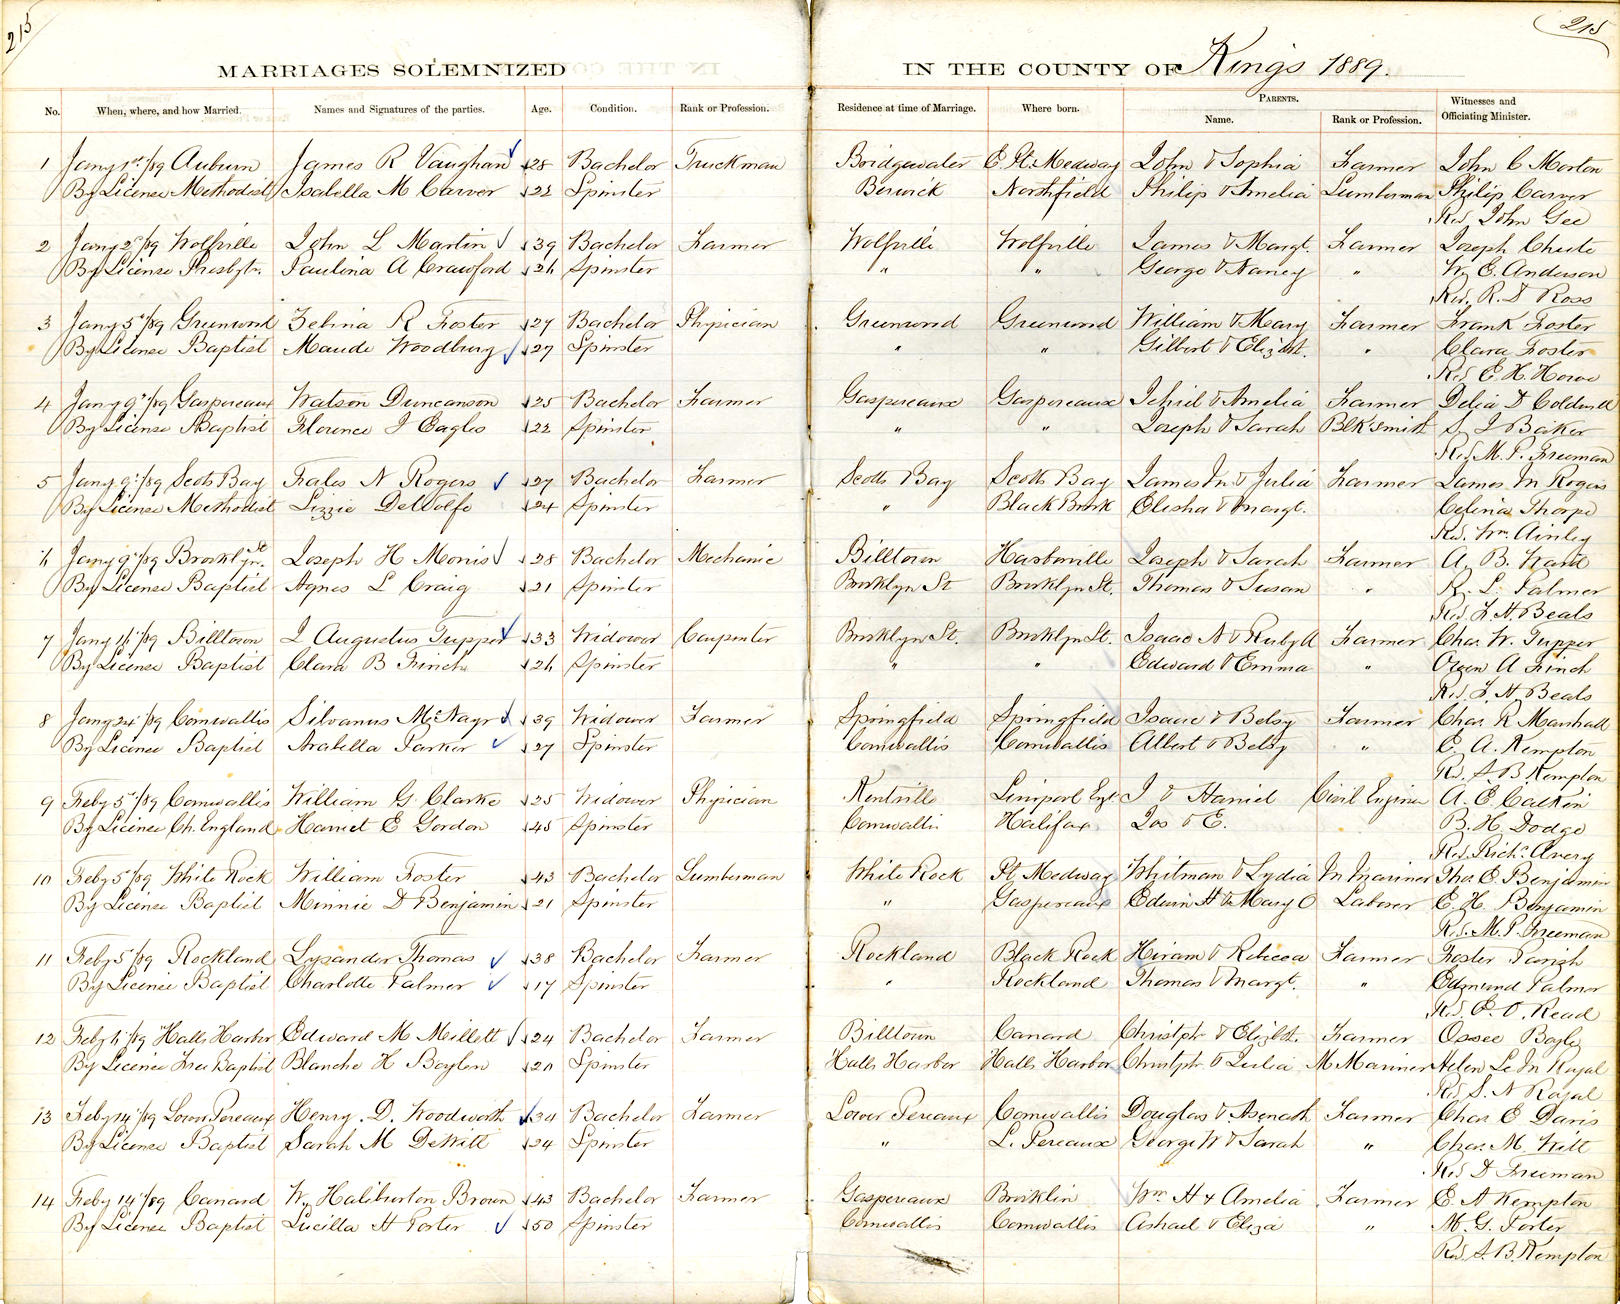 215
215
MARRIAGES SOLEMNIZED IN THE COUNTY OF Kings 1889.
No. When, where, and how Married. Names and Signatures of the parties. Age. Condition. Rank or Profession. Residence at time of Marriage. Where born. PARENTS. Name. Rank or Profession. Witnesses and Officiating Minister.
1 Jany 1st/89 Auburn James R Vaughan 28 Bachelor Truckman Bridgewater E. Pt. Medway John & Sophia Farmer John C Morton
By License Methodist Isabella M Carver 22 Spinster Berwick Northfield Philip & Amelia Lumberman Philip Carver
Rev. John Gee
2 Jany 2"/89 Wolfville John L Martin 39 Bachelor Farmer Wolfville Wolfville James & Margt. Farmer Joseph Chute
By License Presbytn. Paulina A Crawford 26 Spinster " " George & Nancy " Wm E. Anderson
Rev. R. D Ross
3 Jany 5"/89 Greenwood Zebina R Foster 27 Bachelor Physician Greenwood Greenwood William & Mary Farmer Frank Foster
By License Baptist Maude Woodbury 27 Spinster " " Gilbert & Elizabt. " Clara Foster
Rev. E. H. Howe
4 Jany 9"/89 Gaspereaux Watson Duncanson 25 Bachelor Farmer Gaspereaux Gaspereaux Jehiel & Amelia Farmer Delia D Coldwell
By License Baptist Florence J Eagles 22 Spinster " " Joseph & Sarah Blksmith S. J Baker
Rev. M. P. Freeman
5 Jany 9"/89 Scots Bay Fales N Rogers 27 Bachelor Farmer Scotts Bay Scotts Bay James M & Julia Farmer James M Rogers
By License Methodist Lizzie DeWolfe 24 Spinster " Black Brook Elisha & Margt. Celina Thorpe
Rev. Wm. Ainley
6 Jany 9"/89 Brooklyn St Joseph H Morris 28 Bachelor Mechanic Billtown Harborville Joseph & Sarah Farmer A. B. Ward
By License Baptist Agnes L Craig 21 Spinster Brooklyn St Brooklyn St. Thomas & Susan " R. L. Palmer
Rev. F. H. Beals
7 Jany 16"/89 Billtown J Augustus Tupper 33 Widower Carpenter Brooklyn St. Brooklyn St. Isaac N & Ruby A Farmer Chas. W. Tupper
By License Baptist Clara B Finch 26 Spinster " " Edward & Emma " Owen A Finch
Rev. F. H. Beals
8 Jany 24"/89 Cornwallis Silvanus McNayr 39 Widower Farmer Springfield Springfield Isaac & Betsy Farmer Chas. R Marshall
By License Baptist Arabella Parker 27 Spinster Cornwallis Cornwallis Albert & Betsy " E. A. Kempton
Rev. S. B. Kempton
9 Feby 5"/89 Cornwallis William G. Clarke 25 Widower Physician Kentville Liverpool Egt. J & Harriet Civil Engineer A. E. Calkin
By License Ch. England Harriet E Gordon 45 Spinster Cornwallis Halifax Jos & E. B. H. Dodge
Rev. Richd. Avery
10 Feby 5"/89 White Rock William Foster 43 Bachelor Lumberman White Rock Pt. Medway Whitman & Lydia M Mariner Thos. E. Benjamin
By License Baptist Minnie D Benjamin 21 Spinster " Gaspereaux Edwin H & Mary O Laborer E. H. Benjamin
Rev. M. P. Freeman
11 Feby 5"/89 Rockland Lysander Thomas 38 Bachelor Farmer Rockland Black Rock Hiram & Rebecca Farmer Foster
By License Baptist Charlotte Palmer 17 Spinster " Rockland Thomas & Margt. " Edmund Palmer
Rev. E. O. Read
12 Feby 6"/89 Halls Harbor Edward M Millett 24 Bachelor Farmer Billtown Canard Christph & Elizbt. Farmer
By License Free Baptist Blanche H Boylen 20 Spinster Halls Harbor Halls Harbor Christph & Julia M Mariner Helen Le M Royal
Rev. S. N Royal
13 Feby 14"/89 Lower Pereaux Henry. D. Woodworth 34 Bachelor Farmer Lower Pereaux Cornwallis Douglas & Asenath Farmer Chas. E Davis
By License Baptist Sarah M DeWitt 24 Spinster " L. Pereaux George W & Sarah " Chas. M. Witt
Rev. D Freeman
14 Feby 14"/89 Canard Wm Haliburton Brown 43 Bachelor Farmer Gaspereaux Brooklin Wm H & Amelia Farmer E. A Kempton
By License Baptist Lucilla H Porter 50 Spinster Cornwallis Cornwallis Ashael & Eliza " M. G. Porter
Rev. S. B. Kempton